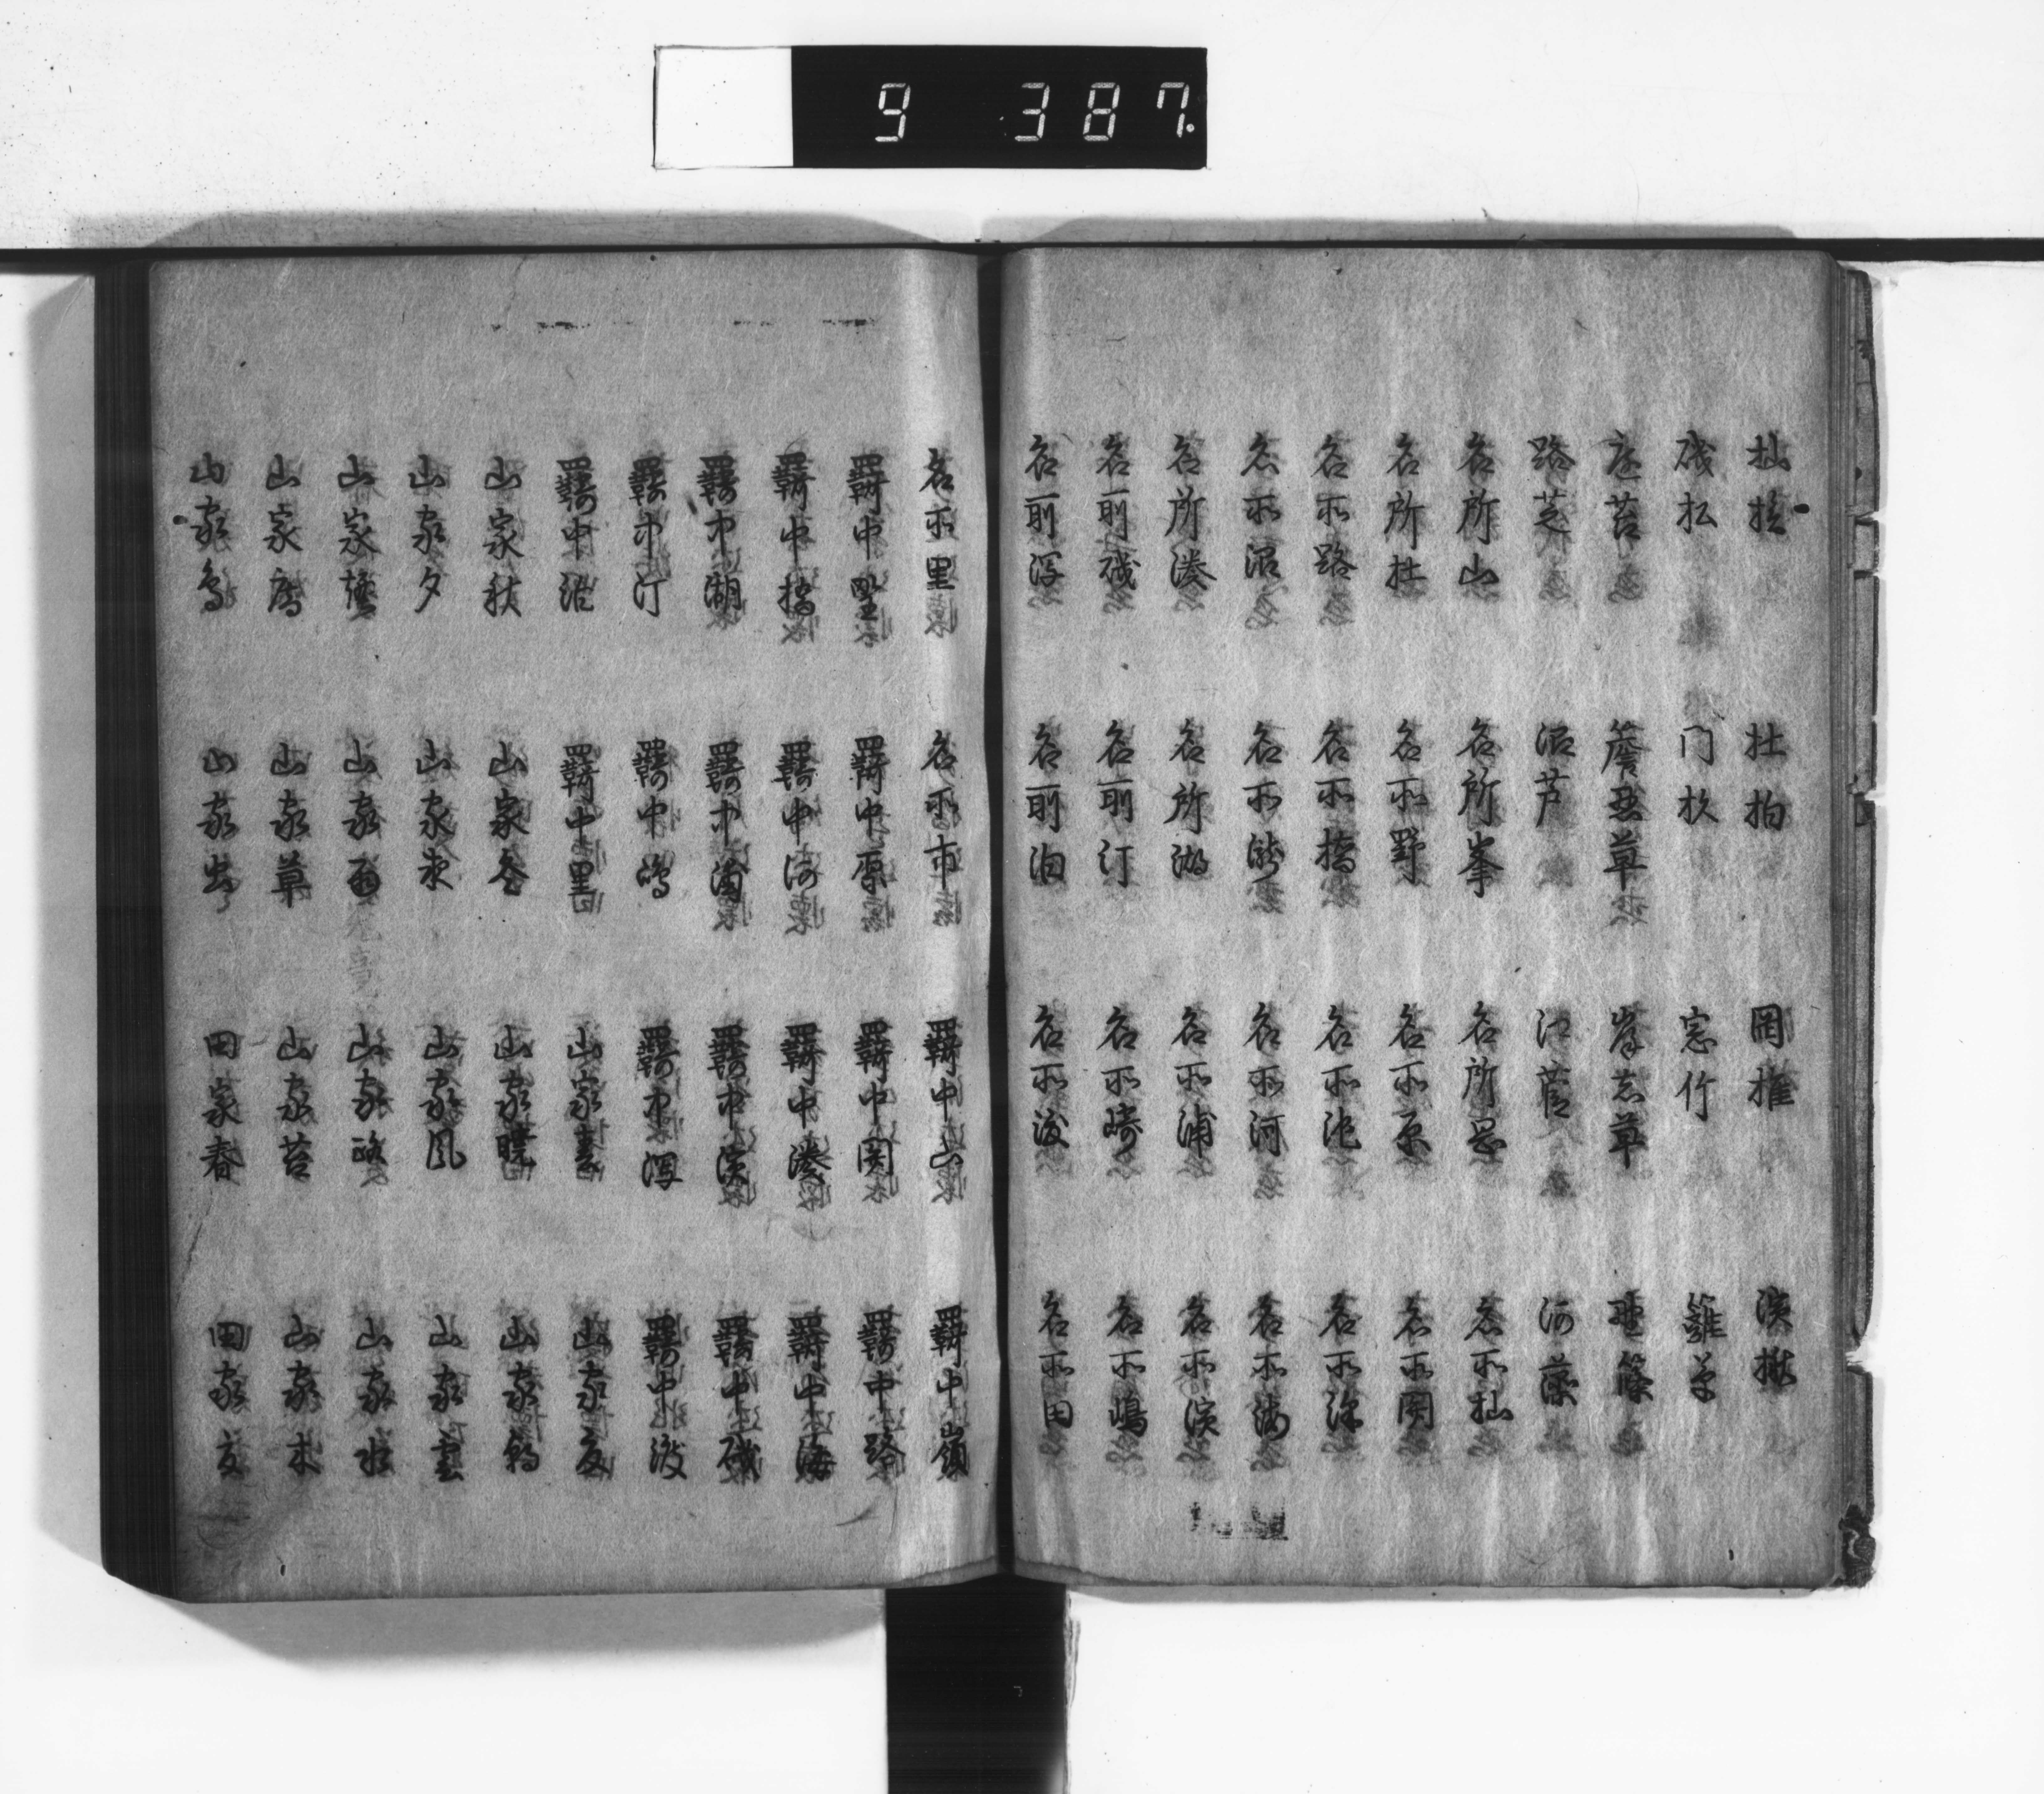 9 387.
杣桂 杜柏 岡椎 濱楸
磯松 门杉 窓竹 籬草
庭苔 簷忍草 岸忘草 野篠
路芝 沼芦 江菅 河藻
名所山 名所峯 名所岡 名所杣
名所杜 名所野 名所原 名所関
名所路 名所橋 名所池 名所江
名所沼 名所瀧 名所河 名所海
名所湊 名所湖 名所浦 名所濱
名所磯 名所汀 名所崎 名所嶋
名所潟 名所泊 名所渡 名所田
名所里 名所市 羇中山 羇中嶺
羇中野 羇中原 羇中関 羇中路
羇中橋 羇中河 羇中湊 羇中海
羇中湖 羇中浦 羇中濱 羇中磯
羇中汀 羇中嶋 羇中潟 羇中渡
羇中泊 羇中里 山家春 山家夏
山家秋 山家冬 山家暁 山家朝
山家夕 山家夜 山家風 山家雲
山家煙 山家雨 山家路 山家水
山家膓 山家草 山家苔 山家木
山家鳥 山家虫 田家春 田家夏